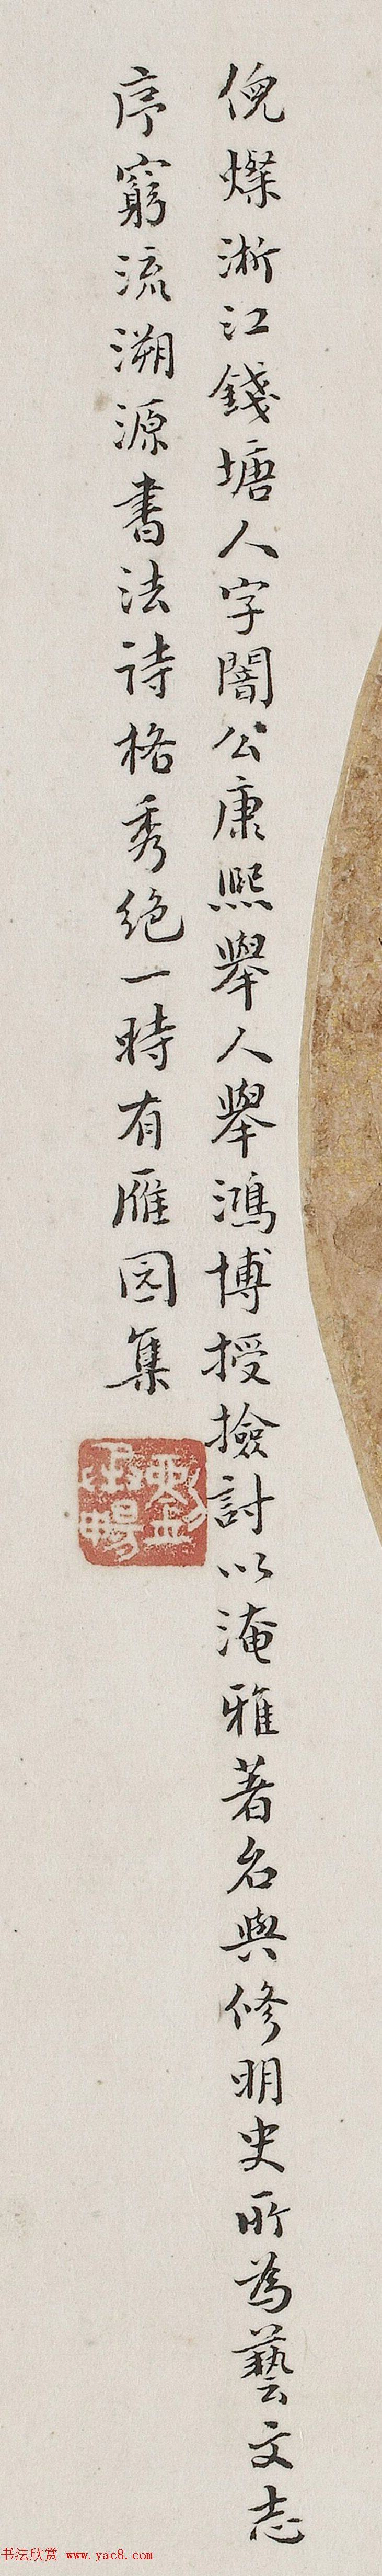 倪燦浙江錢塘人字闇公康熙舉人舉鴻博授撿討以淹雅著名與修明史所為藝文志
序窮流溯源書法詩格秀絕一時有雁园集
书法欣赏 www.yac8.com